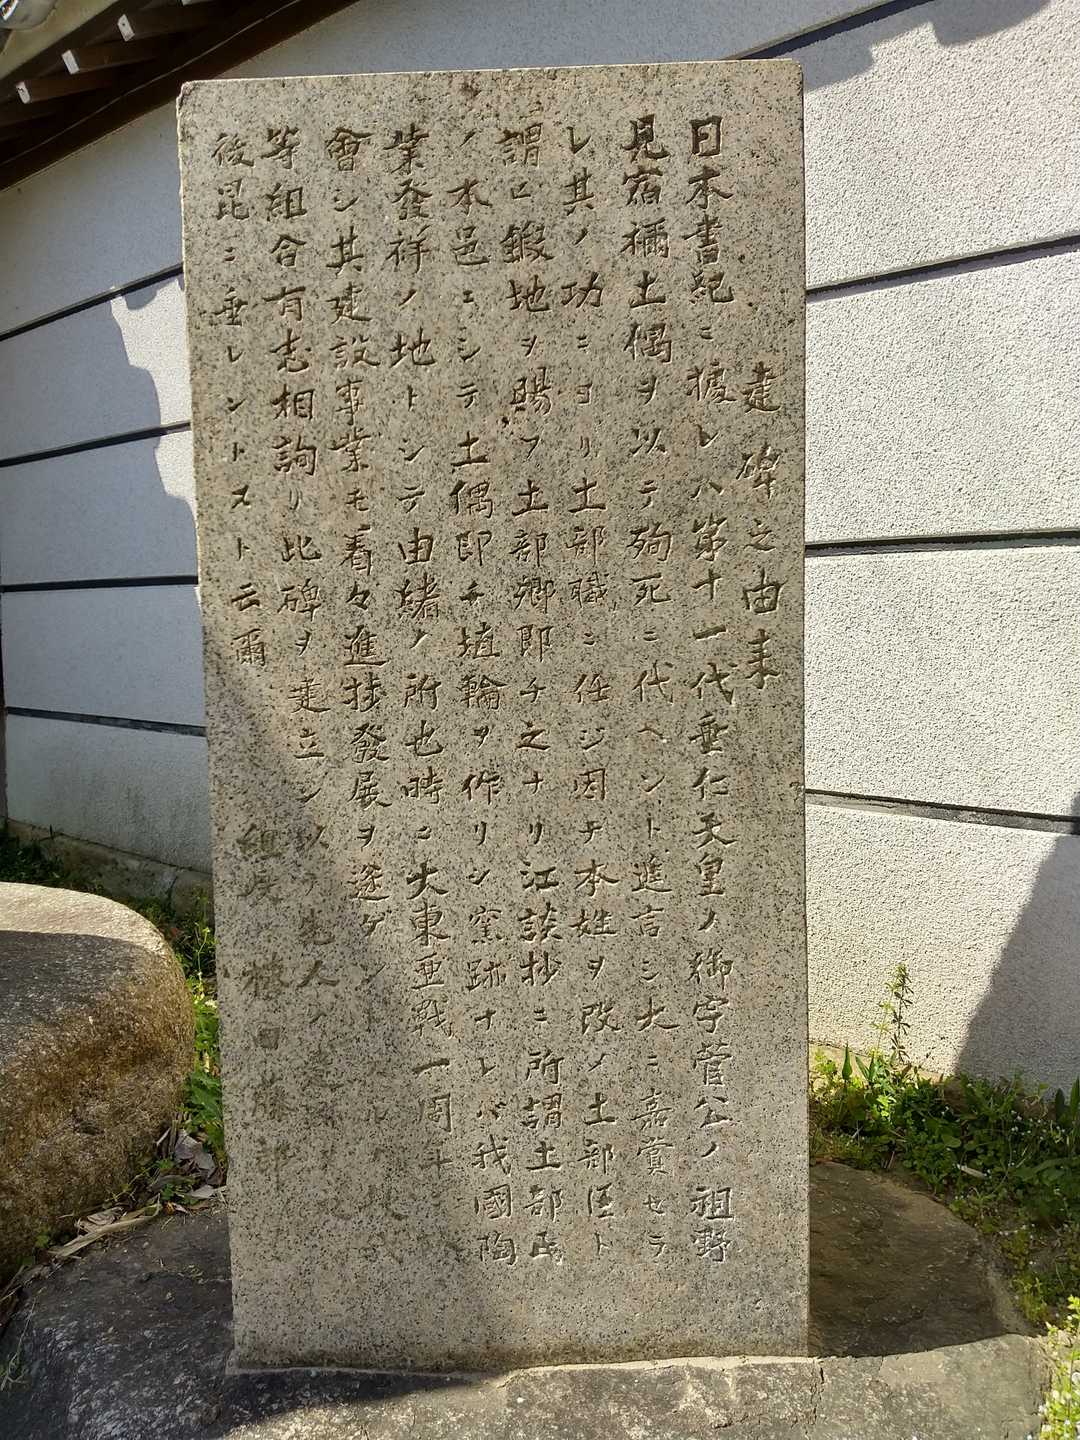 建碑之由来
日本書紀ニ據レハ第十一代垂仁天皇ノ御宇菅公ノ祖野
見宿禰土偶ヲ以テ殉死ニ代ヘント進言シ大ニ嘉賞セラ
レ其ノ功ニヨリ土部職ニ任ジ因テ本姓ヲ改メ土部臣ト
謂ヒ鍛地ヲ賜フ土部郷即チ之ナリ江談抄ニ所謂土部氏
ノ本邑ニシテ土偶即チ埴輪ヲ作リシ窯跡ナレバ我國陶
業發祥ノ地トシテ由緒ノ所也時ニ大東亜戰一周年
會シ其建設事業モ着々進捗發展ヲ遂ゲ
等組合有志相詢リ此碑ヲ建立シ 先人ノ
後昆ニ垂レントスト云爾
組長 田 郎